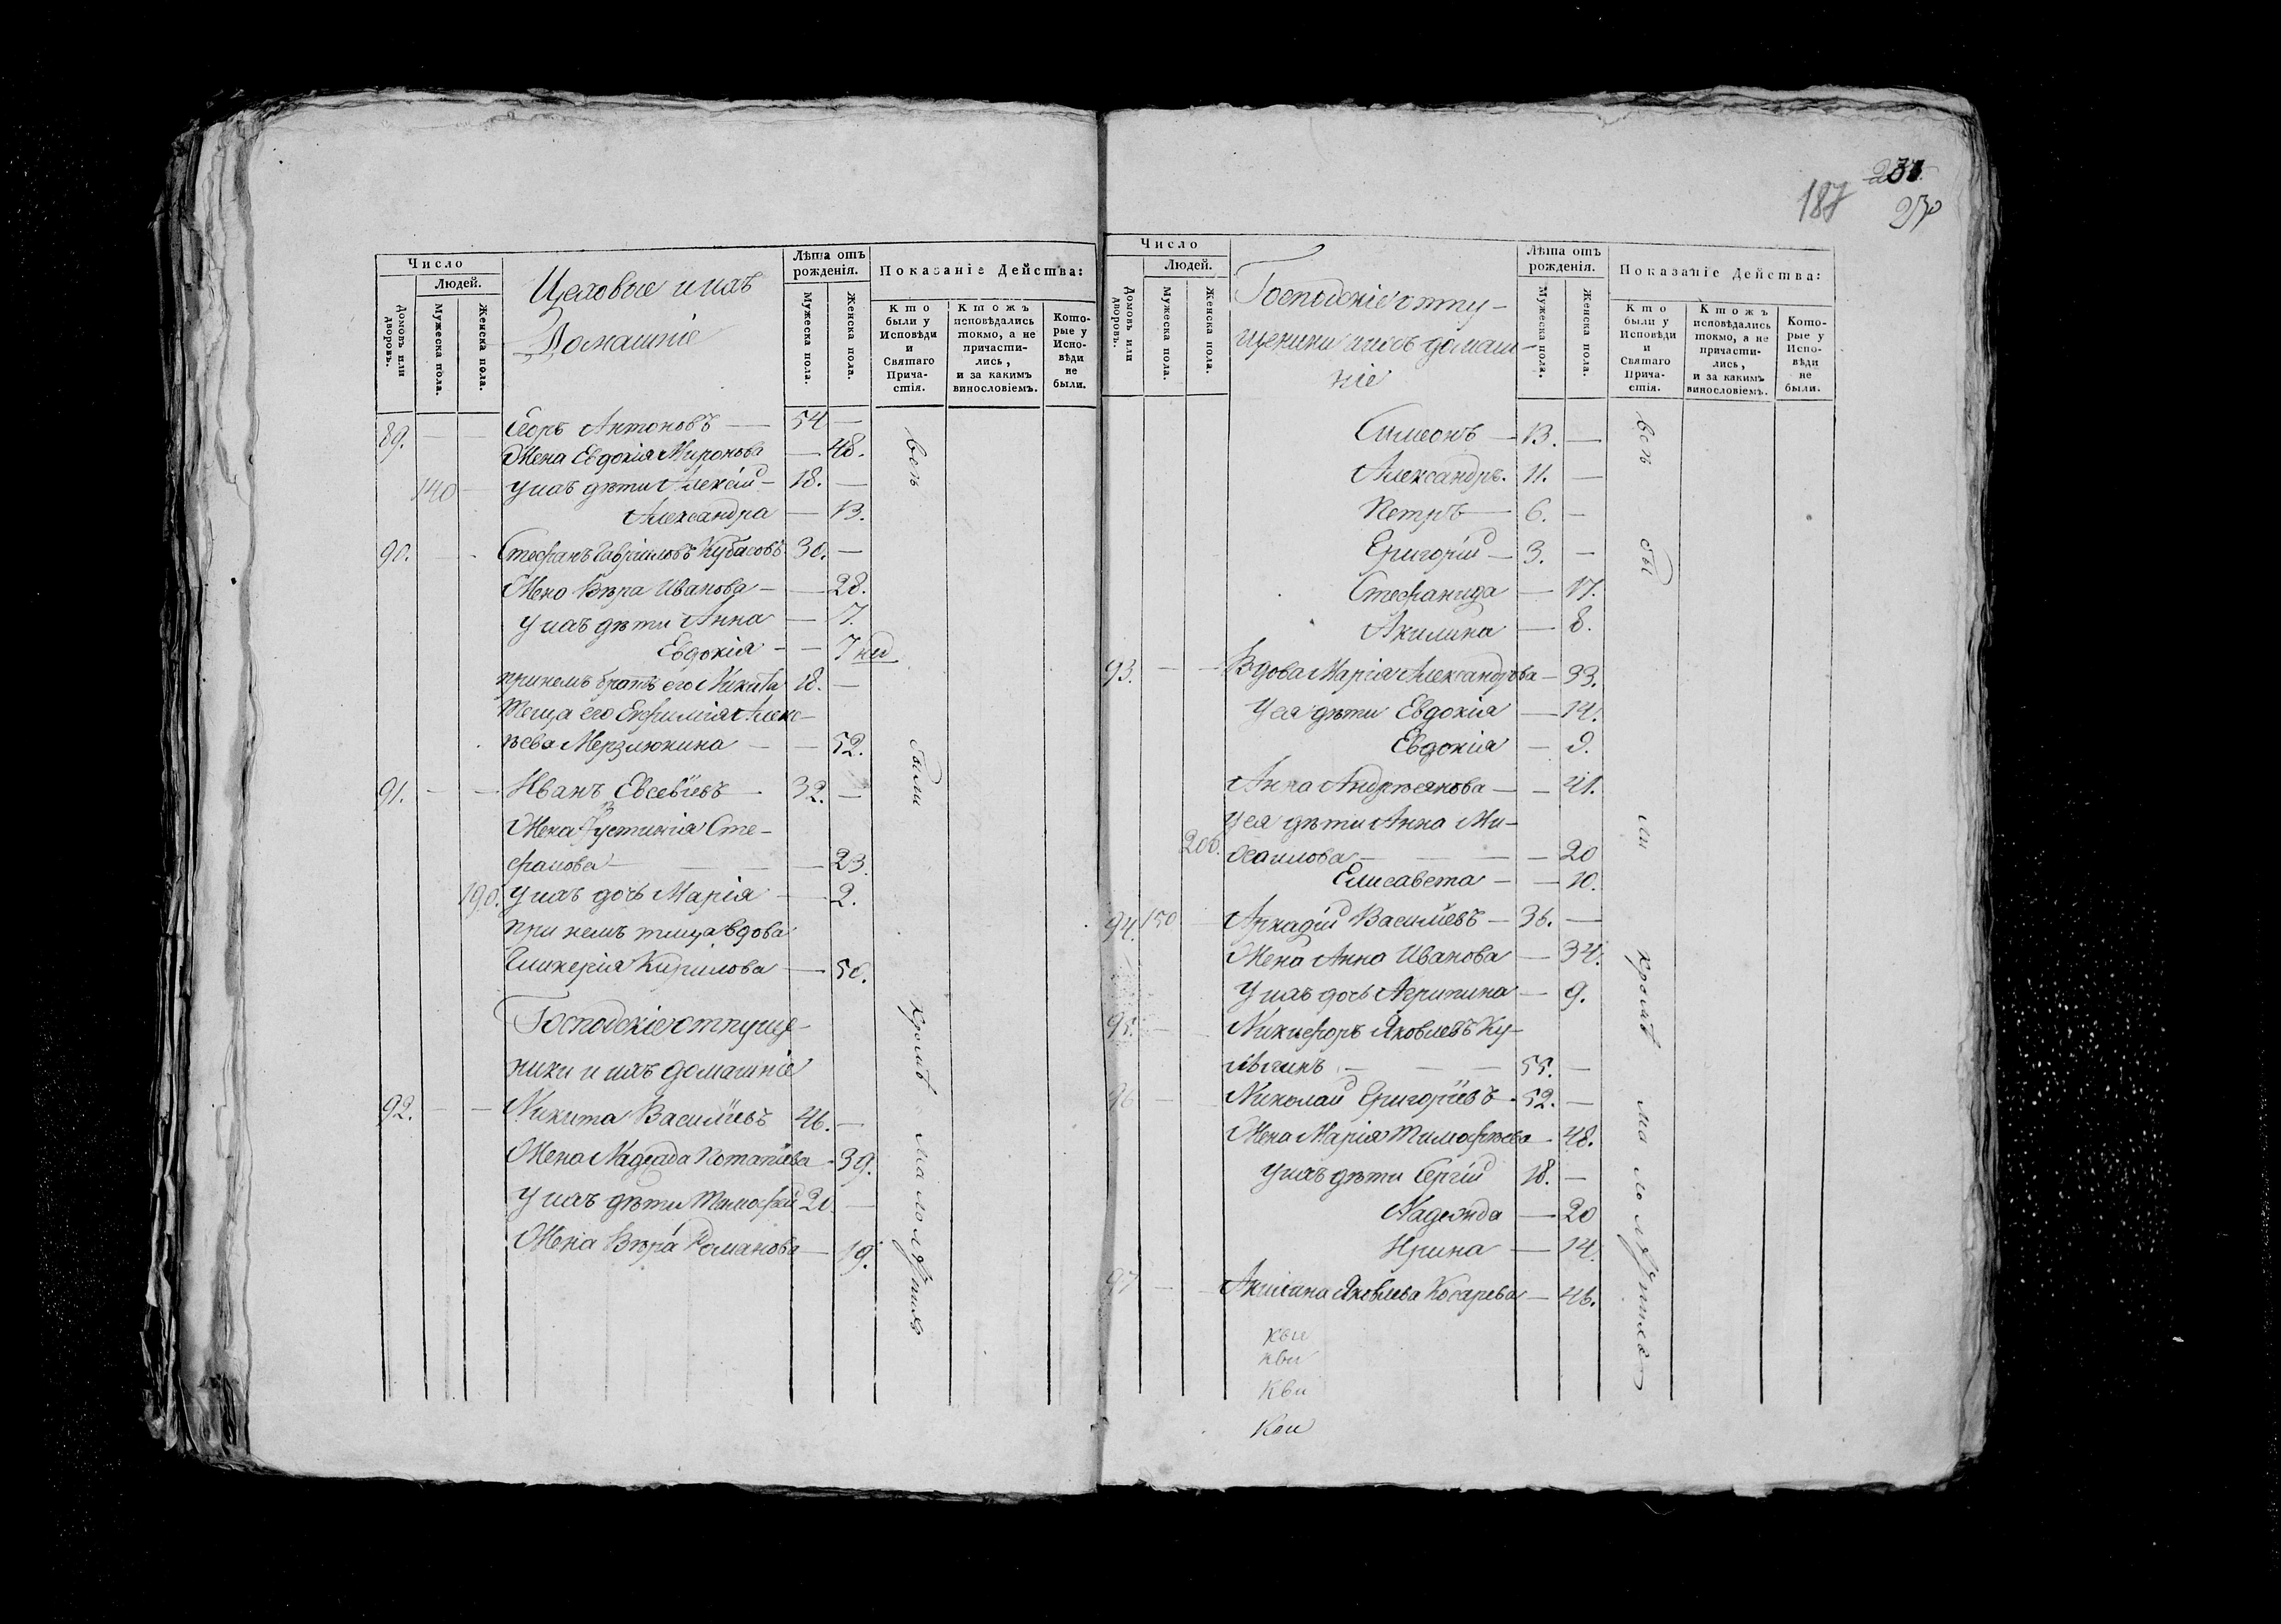 Число
Людей.
Домовъ или дворовъ.
Мужеска пола.
Женска пола.
Цеховые и ихъ
Домашніе
Лѣта отъ рожденія.
Мужеска пола.
Женска пола.
Показаніе Действа:
Кто были у Исповѣди и Святаго Причастія.
Ктожъ исповѣдались токмо, а не причастились, и за какимъ винословіемъ.
Которые у Исповѣди не были.
89. — — Егоръ Антоновъ — 54 —
Жена Евдокія Миронова — 48.
140 — у ихъ дѣти Алексій — 18. —
Александра — 13.
90. — — Стефанъ Гавріиловъ Кубасовъ 30. —
Жена Вѣра Иванова — — 28.
у ихъ дѣти Анна — 7.
Евдокія — — 7 нед
при немъ братъ его Никита 18. —
Теща его Евфимія Алекс-
ѣева Мерзлюкина — — 52.
91. — — Иванъ Евсевіевъ — 32. —
Жена Іустинія Сте-
фанова — — — 23.
190. у ихъ дочь Марія — 2.
при немъ теща вдова
Гликерія Кирилова — 50.
Господскіе отпуще-
ники и ихъ домашніе
92. — — Никита Василіевъ 46. —
Жена Надежда Потапіева — 39.
У ихъ дѣти Тимофей 20 —
Жена Вѣра Романова — 19.
всѣ были кромѣ малолѣтних
187 231
230
Число
Людей.
Домовъ или дворовъ.
Мужеска пола.
Женска пола.
Господскіе отпу-
щеники и ихъ домаш-
ніе
Лѣта отъ рожденія.
Мужеска пола.
Женска пола.
Показаніе Действа:
Кто были у Исповѣди и Святаго Причастія.
Ктожъ исповѣдались токмо, а не причастились, и за какимъ винословіемъ.
Которые у Исповѣди не были.
Симеонъ — 13. —
Александръ. 11. —
Петръ — 6. —
Григорій — 3. —
Стефанида — 17.
Акилина — 8.
93. — — Вдова Марія Александрова — 33.
У ея дѣти Евдокія — 14.
Евдокія — 9.
Анна Андреянова — — 41.
У ея дѣти Анна Ми-
200. хаилова — — — 20
Елисавета — — 10.
94. 150 — Аркадій Василіевъ — 36. —
Жена Анна Иванова — 34.
У ихъ дочь Агрипина — 9.
95. — — Никифоръ Яковлевъ Ку-
— — — 55. —
96 — — Николай Григоріевъ — 52. —
Жена Марія Тимофѣева — 48.
у ихъ дѣти Сергій 18. —
Надежда — 20
Ирина — 14.
97 — — Акилина Яковлева Косарева — 46.
всѣ были кромѣ малолѣтних
кви
кви
Кви
Кви